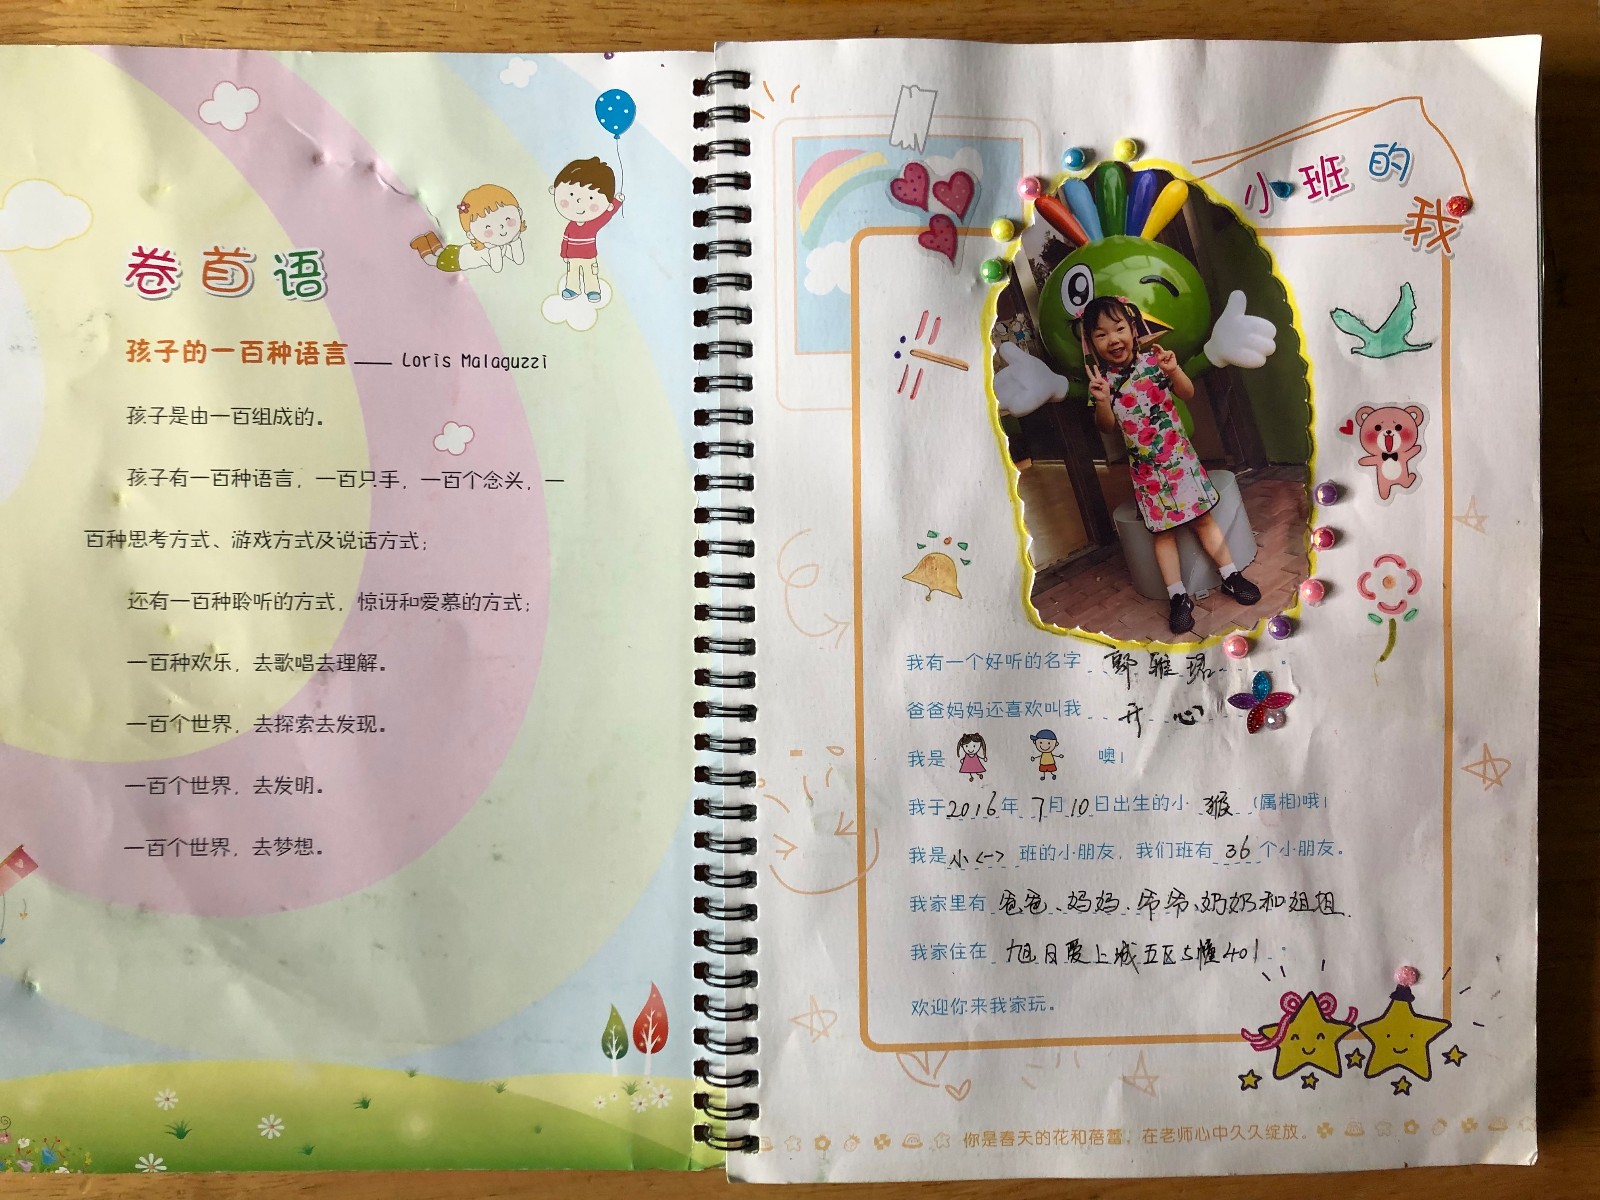 卷首语
孩子的一百种语言——Loris Malaguzzi
孩子是由一百组成的。
孩子有一百种语言，一百只手，一百个念头，一
百种思考方式、游戏方式及说话方式；
还有一百种聆听的方式，惊讶和爱慕的方式；
一百种欢乐，去歌唱去理解。
一百个世界，去探索去发现。
一百个世界，去发明。
一百个世界，去梦想。
小班的我
我有一个好听的名字 郭雅珺。
爸爸妈妈还喜欢叫我 开心
我是 噢！
我于2016年7月10日出生的小猴（属相）哦！
我是小<一>班的小朋友，我们班有36个小朋友。
我家里有爸爸、妈妈、爷爷、奶奶和姐姐.
我家住在 旭日爱上城五区5幢401。
欢迎你来我家玩。
你是春天的花和蓓蕾，在老师心中久久绽放。